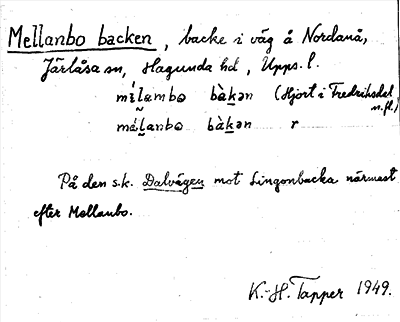 Mellanbo backen, backe i väg å Nordanå,
Järlåsa sn, Hagunda hd, Upps. l.
mílambo bàkən (Hjort i Fredriksdal
m.fl.)
málanbo bàkən r
På den s.k. Dalvägen mot Lingonbacka närmast
efter Mellanbo.
K.-H. Tapper 1949.